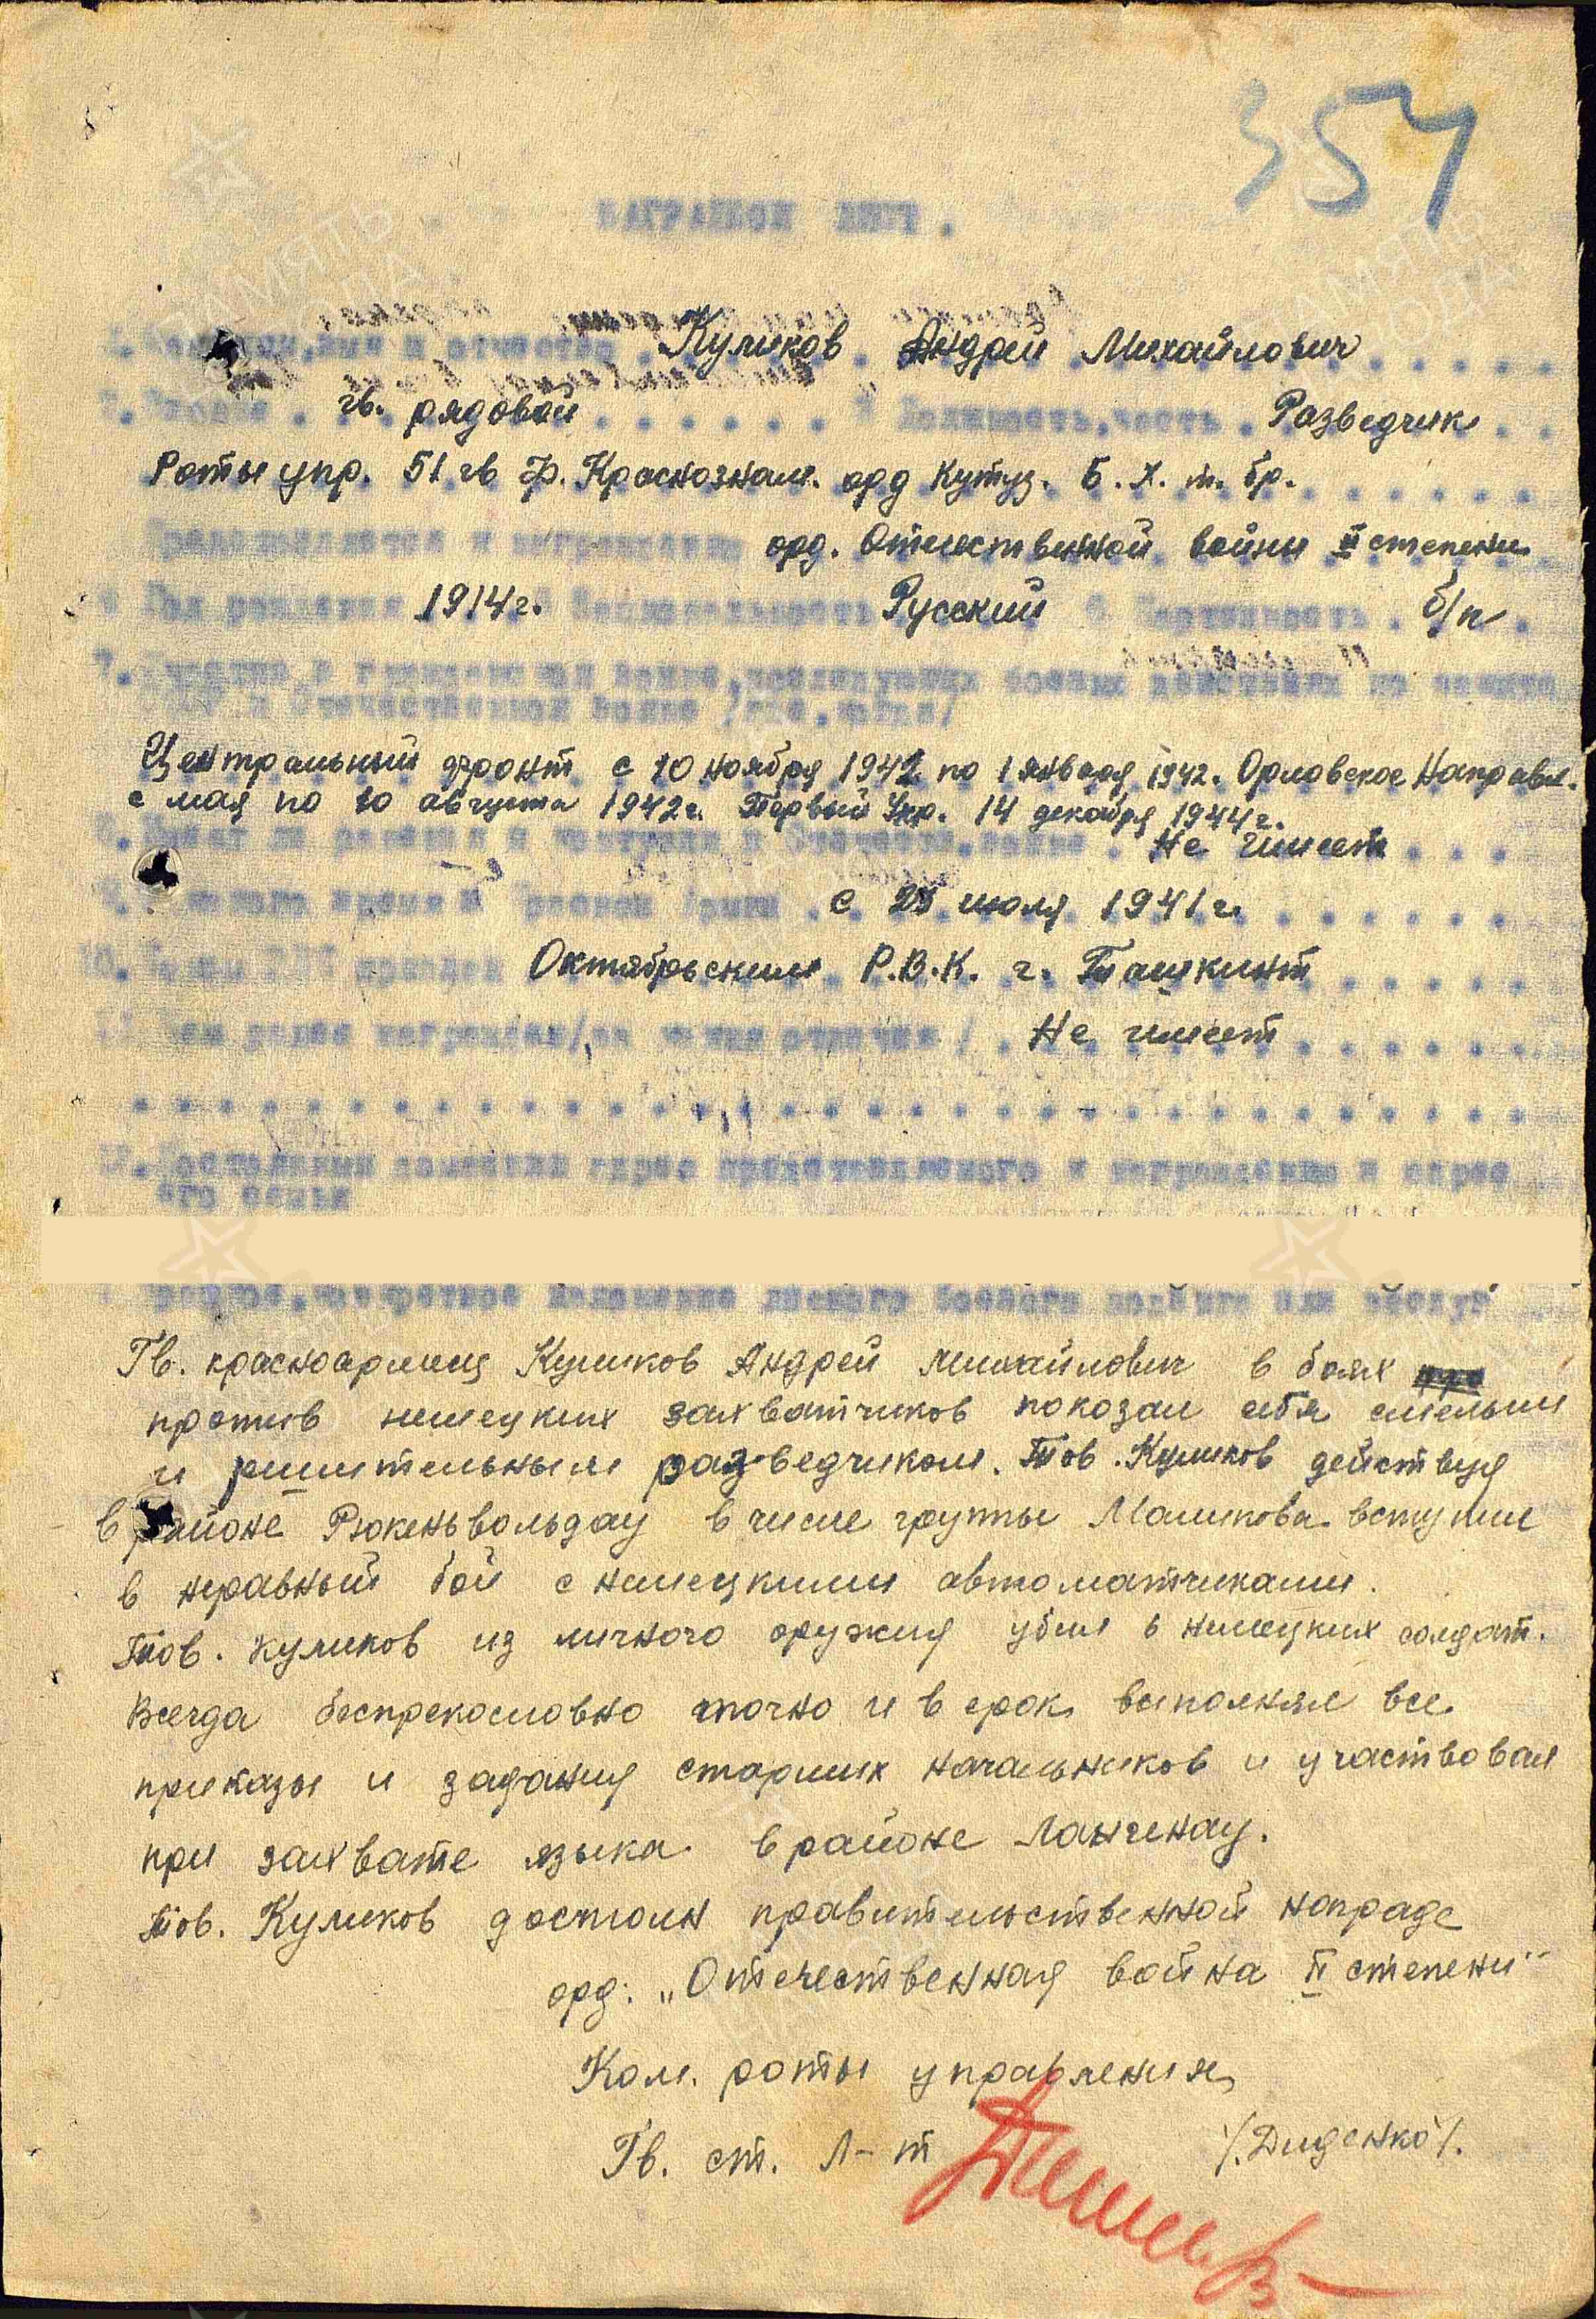 354
НАГРАДНОЙ ЛИСТ.
1. Фамилия, имя и отчество Куликов Андрей Михайлович
2. Звание гв. рядовой 3 Должность, часть Разведчик
Роты упр. 51 гв ф. Краснознам. орд Кутуз. Б. Х. т. бр.
Представляется к награждению орд. Отечественной войны II степени
4 Год рождения 1914 г. 5 Национальность Русский 6 Партийность б/п
7. Участие в гражданской войне, последующих боевых действиях по защите
СССР и Отечественной войне /где, когда/
Центральный фронт с 10 ноября 1942 по 1 января 1942. Орловское Направл.
с мая по 10 августа 1942 г. Первый Укр. 14 декабря 1944 г.
8. Имеет ли ранения и контузии в Отечеств. войне. Не имеет
9. С какого время в Красной Армии с 25 июля 1941 г.
10. Каким РВК призван Октябрьским Р.В.К. г. Ташкинт
11. Чем ранее награжден /за какие отличия/ Не имеет
12. Постоянный домашний адрес представляемого к награждению и адрес
его семьи
краткое, конкретное изложение личного боевого подвига или заслуг
Гв. красноармеец Куликов Андрей Михайлович в боях
против немецких захватчиков показал себя смелым
и решительным разведчиком. Тов. Куликов действуя
в районе Рюкеньвольдау в числе группы Маликова вступил
в неравный бой с немецкими автоматчиками.
Тов. Куликов из личного оружия убил 6 немецких солдат.
Всегда беспрекословно точно и в срок выполнял все
приказы и задания старших начальников и участвовал
при захвате языка в районе Лангенау.
Тов. Куликов достоин правительственной награде
орд: „Отечественная война II степени"
Ком. роты управления
Гв. ст. Л-т /.Диденко/.
ПАМЯТЬ
НАРОДА